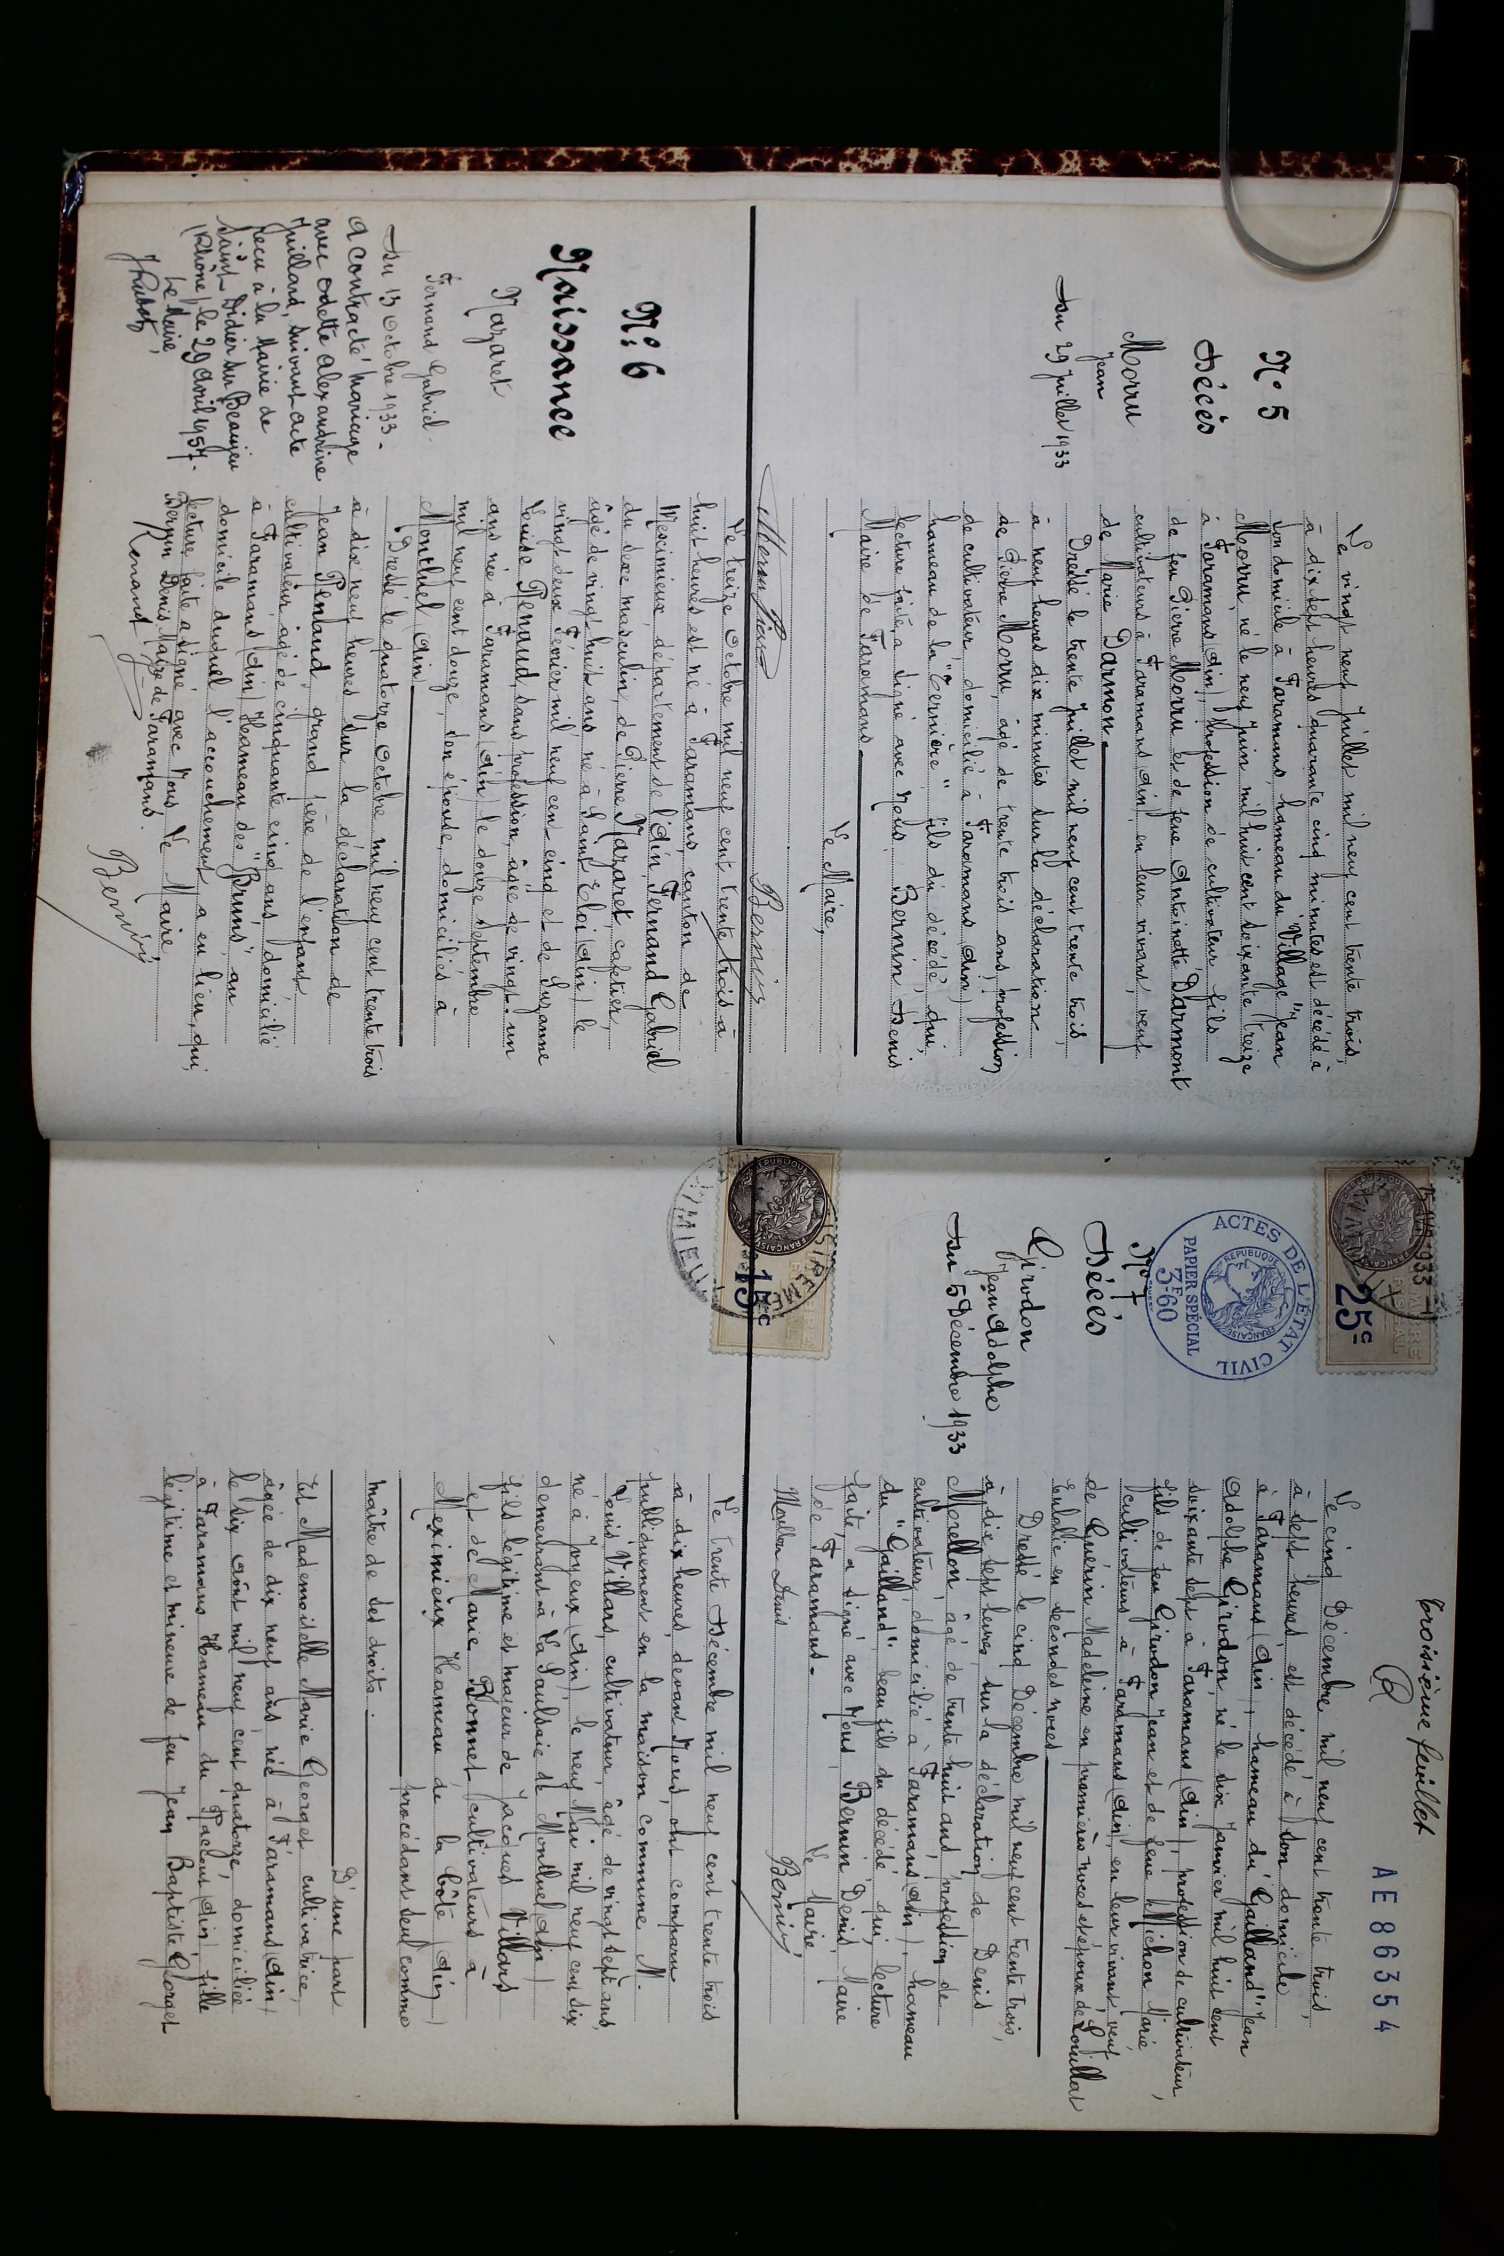 N° 5
Décès
Morru
Jean
Du 29 Juillet 1933
Le vingt neuf Juillet mil neuf cent trente trois,
à dix sept heures quarante cinq minutes est décédé à
son domicile à Faramans, hameau du "Village" Jean
Morru, né le neuf Juin mil huit cent soixante treize
à Faramans (Ain), Profession de cultivateur fils
de feu Pierre Morru et de feue Antoinette Darmont
cultivateurs à Faramans (Ain) en leur vivant, veuf
de Marie Darmon.
Dressé le trente Juillet mil neuf cent trente trois,
à neuf heures dix minutes sur la déclaration
de Pierre Morru, âgé de trente trois ans, profession
de cultivateur, domicilié à Faramans (Ain)
hameau de la fils du décédé, qui,
lecture faite, a signé avec Nous, Bernin Denis
Maire de Faramans.
Le Maire,
Bernin
N° 6
Naissance
Nazaret
Fernand Gabriel.
Du 13 Octobre 1933.
A contracté mariage
avec Odette Alexandrine
Juillard, suivant acte
reçu à la Mairie de
Saint Didier sur Beaujeu
(Rhône) le 29 avril 1957.
Le Maire
Le treize Octobre mil neuf cent trente trois à
huit heures est né à Faramans, canton de
Meximieux, département de l'Ain, Fernand Gabriel
du sexe masculin, de Pierre Nazaret, cafetier,
âgé de vingt huit ans né à Saint Eloi (Ain) le
vingt deux Février mil neuf cent cinq et de Suzanne
Louise Renaud, sans profession, âgée de vingt un
ans née à Faramans (Ain) le douze septembre
mil neuf cent douze, son épouse, domiciliés à
Montluel (Ain)
Dressé le quatorze Octobre mil neuf cent trente trois
à dix neuf heures sur la déclaration de
Jean Renaud, grand père de l'enfant,
cultivateur, âgé de cinquante cinq ans, domicilié
à Faramans (Ain) Hameau des "Bruns" au
domicile duquel l'accouchement a eu lieu, qui,
lecture faite a signé avec Nous Le Maire,
Bernin Denis Maire de Faramans.
Renaud
Bernin
troisième feuillet
AE 86354
25c
ACTES DE L'ÉTAT CIVIL
RÉPUBLIQUE FRANÇAISE
PAPIER SPÉCIAL
3F60
N° 7
Décès
Girodon
Jean Adolphe
Du 5 Décembre 1933
Le cinq Décembre mil neuf cent trente trois,
à sept heures, est décédé à son domicile
à Faramans (Ain), hameau du "Gailland" Jean
Adolphe Girodon, né le six Janvier mil huit cent
soixante sept à Faramans (Ain), profession de cultivateur,
fils de feu Girodon Jean et de feue Michon Marie,
cultivateurs à Faramans (Ain) en leur vivant, veuf
de Guérin Madeleine en premières noces et époux de
Eulalie en secondes noces
Dressé le cinq Décembre mil neuf cent trente trois,
à dix sept heures, sur la déclaration de Denis
Morellon, âgé de trente huit ans, profession de
cultivateur, domicilié à Faramans (Ain), hameau
du "Gailland" beau fils du décédé qui, lecture
faite, a signé avec Nous, Bernin Denis, Maire
de Faramans.
Le Maire,
Morellon Denis
Bernin
15c
Le trente Décembre mil neuf cent trente trois
à dix heures, devant Nous, ont comparu
publiquement en la maison commune M.
Louis Villars, cultivateur, âgé de vingt sept ans,
né à Joyeux (Ain), le neuf Mai mil neuf cent six
demeurant à La Saulsaie de Montluel (Ain)
fils légitime et majeur de Jacques Villars
et de Marie Bonnet, cultivateurs à
Meximieux Hameau de la Côte (Ain)
procédant seul comme
maître de ses droits.
D'une part
Et Mademoiselle Marie Georget cultivatrice,
âgée de dix neuf ans, née à Faramans (Ain)
le six Août mil neuf cent quatorze, domiciliée
à Faramans Hameau du (Ain) fille
légitime et mineure de feu Jean Baptiste Georget